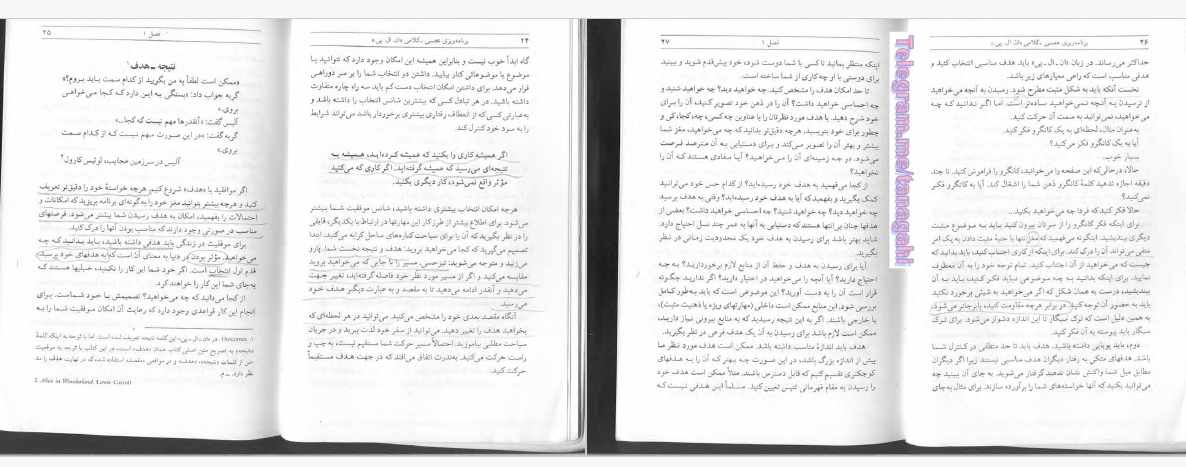 ۲۴
برنامه‌ریزی عصبی ـ کلامی «ان. ال. پی.»
گاه ابداً خوب نیست و بنابراین همیشه این امکان وجود دارد که نتوانید با
موضوع یا موضوعاتی کنار بیایید. داشتن دو انتخاب شما را بر سر دوراهی
قرار می‌دهد. برای داشتن امکان انتخاب دست کم باید سه راه چاره متفاوت
داشته باشید. در هر تبادل کسی که بیشترین شانس انتخاب را داشته باشد و
به‌عبارتی کسی که از انعطاف رفتاری بیشتری برخوردار باشد می‌تواند شرایط
را به سود خود کنترل کند.
اگر همیشه کاری را بکنید که همیشه کرده‌اید، همیشه به
نتیجه‌ای می‌رسید که همیشه گرفته‌اید. اگر کاری که می‌کنید
مؤثر واقع نمی‌شود، کار دیگری بکنید.
هرچه امکان انتخاب بیشتری داشته باشید، شانس موفقیت شما بیشتر
می‌شود. برای اطلاع بیشتر از طرز کار این مهارتها در ارتباط با یکدیگر، قایقی
را در نظر بگیرید که آن را برای سیاحت کناره‌های ساحل کرایه می‌کنید. ابتدا
تصمیم می‌گیرید که کجا می‌خواهید بروید: هدف و نتیجه نخست شما. پارو
می‌زنید و متوجه می‌شوید: تیزحسی. مسیر را با جایی که می‌خواهید بروید
مقایسه می‌کنید و اگر از مسیر مورد نظر خود فاصله گرفته‌اید، تغییر جهت
می‌دهید و آنقدر ادامه می‌دهید تا به مقصد و به عبارت دیگر هدف خود
می‌رسید.
آنگاه مقصد بعدی خود را مشخص می‌کنید. می‌توانید در هر لحظه‌ای که
بخواهید هدف را تغییر دهید. می‌توانید از سفر خود لذت ببرید و در جریان
سیاحت مطلبی بیاموزید. احتمالاً مسیر حرکت شما مستقیم نیست، به چپ و
راست حرکت می‌کنید. به‌ندرت اتفاق می‌افتد که در جهت هدف مستقیماً
حرکت کنید.
فصل ۱
۲۵
نتیجه ـ هدف۱
«ممکن است لطفاً به من بگویید از کدام سمت باید بروم؟»
گربه جواب داد: «بستگی به این دارد که کجا می‌خواهی
بروی.»
آلیس گفت: «آنقدرها مهم نیست که کجا...»
گربه گفت: «در این صورت مهم نیست که از کدام سمت
بروی.»
آلیس در سرزمین عجایب، لوئیس کارول۲
اگر موافقید با «هدف» شروع کنیم. هرچه خواستهٔ خود را دقیق‌تر تعریف
کنید و هرچه بیشتر بتوانید مغز خود را به‌گونه‌ای برنامه بریزید که امکانات و
احتمالات را بفهمید، امکان به هدف رسیدن شما بیشتر می‌شود. فرصتهای
مناسب در صورتی وجود دارند که مناسب بودن آنها را درک کنید.
برای موفقیت در زندگی باید هدفی داشته باشید، باید بدانید که چه
می‌خواهید. مؤثر بودن در دنیا به معنای آن است که به هدفهای خود برسید،
قدم اول انتخاب است. اگر خود شما این کار را نکنید، خیلیها هستند که
به‌جای شما این کار را خواهند کرد.
از کجا می‌دانید که چه می‌خواهید؟ تصمیمش با خود شماست. برای
انجام این کار قواعدی وجود دارد که رعایت آن امکان موفقیت شما را به
1. Outcomes. در «ان. ال. پی.» این کلمه نتیجه تعریف شده است. اما با توجه به اینکه کلمهٔ
«نتیجه» به تصریح متن اصلی کتاب همان «هدف» است، در این کتاب با توجه به موقعیت
متن از کلمات «نتیجه»، «هدف» و در مواقعی «مقصد» استفاده شده که در نهایت هدف را مد
نظر دارد. ـ م.
2. Alice in Wonderland, Lewis Carroll
۲۶
برنامه‌ریزی عصبی ـ کلامی «ان. ال. پی.»
حداکثر می‌رساند. در زبان «ان. ال. پی» باید هدف مناسبی انتخاب کنید و
هدفی مناسب است که راضی معیارهای زیر باشد.
نخست آنکه باید به شکل مثبت مطرح شود. رسیدن به آنچه می‌خواهید
از نرسیدن به آنچه نمی‌خواهید ساده‌تر است. اما اگر ندانید که چه
می‌خواهید، نمی‌توانید به سمت آن حرکت کنید.
به‌عنوان مثال، لحظه‌ای به یک کانگرو فکر کنید.
آیا به یک کانگرو فکر می‌کنید؟
بسیار خوب.
حالا، درحالی‌که این صفحه را می‌خوانید، کانگرو را فراموش کنید. تا چند
دقیقه اجازه ندهید کلمهٔ کانگرو ذهن شما را اشغال کند. آیا به کانگرو فکر
نمی‌کنید؟
حالا فکر کنید که فردا چه می‌خواهید بکنید...
برای اینکه فکر کانگرو را از سرتان بیرون کنید باید به موضوع مثبت
دیگری بیندیشید. اینگونه می‌فهمید که مغز تنها با جنبهٔ مثبت دادن به یک امر
منفی می‌تواند آن را درک کند. برای اینکه از کاری اجتناب کنید، باید بدانید که
چیست که می‌خواهید از آن اجتناب کنید. تمام توجه خود را به آن معطوف
نمایید. برای اینکه بدانید به چه موضوعی نباید فکر کنید، باید به آن
بیندیشید، درست به همان شکل که اگر می‌خواهید به شیئی برخورد نکنید
باید به حضور آن توجه کنید. در برابر هرچه مقاومت کنید، پابرجاتر می‌شود.
به همین دلیل است که ترک سیگار تا این اندازه دشوار می‌شود. برای ترک
سیگار باید پیوسته به آن فکر کنید.
دوم، باید پویایی داشته باشید. هدف باید تا حد منطقی در کنترل شما
باشد. هدفهای متکی به رفتار دیگران هدف مناسبی نیستند زیرا اگر دیگران
مطابق میل شما واکنش نشان ندهند گرفتار می‌شوید. به جای آن ببینید چه
می‌توانید بکنید که آنها خواسته‌های شما را برآورده سازند. برای مثال به‌جای
Telegram.me/tamagahi
فصل ۱
۲۷
اینکه منتظر بمانید تا کسی با شما دوست شود، خود پیش‌قدم شوید و ببینید
برای دوستی با او چه کاری از شما ساخته است.
تا حد امکان هدف را مشخص کنید. چه خواهید دید؟ چه خواهید شنید و
چه احساسی خواهید داشت؟ آن را در ذهن خود تصویر کنید، آن را برای
خود شرح دهید. یا هدف مورد نظرتان را با عناوین چه کسی، چه، کجا، کی و
چطور برای خود بنویسید. هرچه دقیق‌تر بدانید که چه می‌خواهید، مغز شما
بیشتر و بهتر آن را تصویر می‌کند و برای دستیابی به آن مترصد فرصت
می‌شود. در چه زمینه‌ای آن را می‌خواهید؟ آیا مفادی هستند که آن را
نخواهید؟
از کجا می‌فهمید به هدف خود رسیده‌اید؟ از کدام حس خود می‌توانید
کمک بگیرید و بفهمید که آیا به هدف خود رسیده‌اید؟ وقتی به هدف برسید
چه خواهید دید؟ چه خواهید شنید؟ چه احساسی خواهید داشت؟ بعضی از
هدفها چنان بی‌انتها هستند که دستیابی به آنها به عمر چند نسل احتیاج دارد.
شاید بهتر باشد برای رسیدن به هدف خود یک محدودیت زمانی در نظر
بگیرید.
آیا برای رسیدن به هدف و حفظ آن از منابع لازم برخوردارید؟ به چه
احتیاج دارید؟ آیا آنچه را می‌خواهید در اختیار دارید؟ اگر ندارید چگونه
قرار است آن را به دست آورید؟ این موضوعی است که باید به‌طور کامل
بررسی شود. این منابع ممکن است داخلی (مهارتهای ویژه یا ذهنیت مثبت)،
یا خارجی باشند. اگر به این نتیجه رسیدید که به منابع بیرونی نیاز دارید،
ممکن است لازم باشد برای رسیدن به آن یک هدف فرعی در نظر بگیرید.
هدف باید اندازهٔ مناسب داشته باشد. ممکن است هدف مورد نظر ما
بیش از اندازه بزرگ باشد، در این صورت چه بهتر که آن را به هدفهای
کوچکتری تقسیم کنیم که قابل دسترس باشند. مثلاً ممکن است هدف خود
را رسیدن به مقام قهرمانی تنیس تعیین کنید. مسلماً این هدفی نیست که